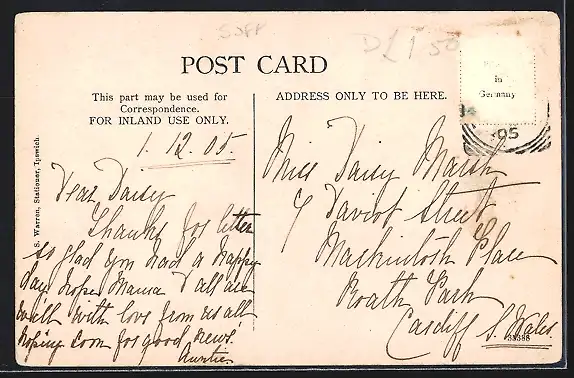 Suff
D£1.50
POST CARD
This part may be used for
Correspondence.
FOR INLAND USE ONLY.
ADDRESS ONLY TO BE HERE.
in
Germany
05
S. Warren, Stationer, Ipswich.
1.12.05.
Dear Daisy
Thanks for letter
so glad you had a happy
day. hope Mama & all are
well with love from us all
hoping soon for good news.
Auntie.
Miss Daisy Marsh
7 Daviot Street
Mackintosh Place
Roath Park
Cardiff S. Wales.
38388